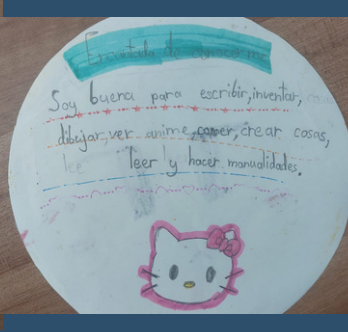 Encantada de conocerme
Soy buena para escribir, inventar,
dibujar, ver anime, comer, crear cosas,
leer y hacer manualidades.